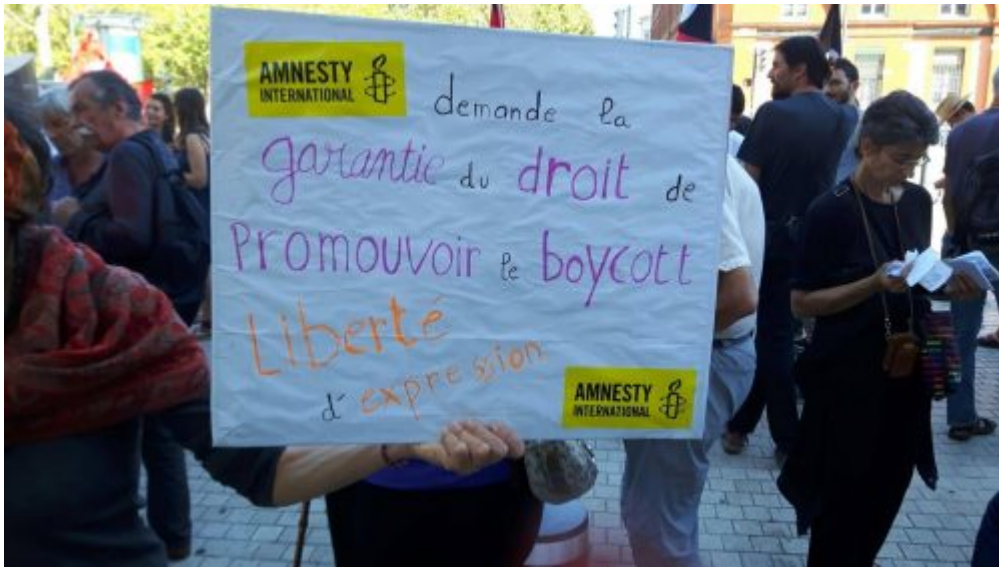 AMNESTY
INTERNATIONAL
demande la
garantie du droit de
Promouvoir le boycott
Liberté
d'expression
AMNESTY
INTERNATIONAL